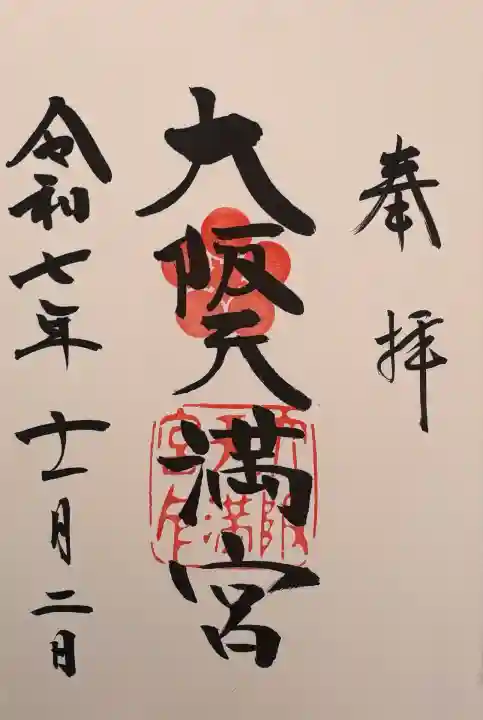 奉拝
大阪天満宮
令和七年十一月二日